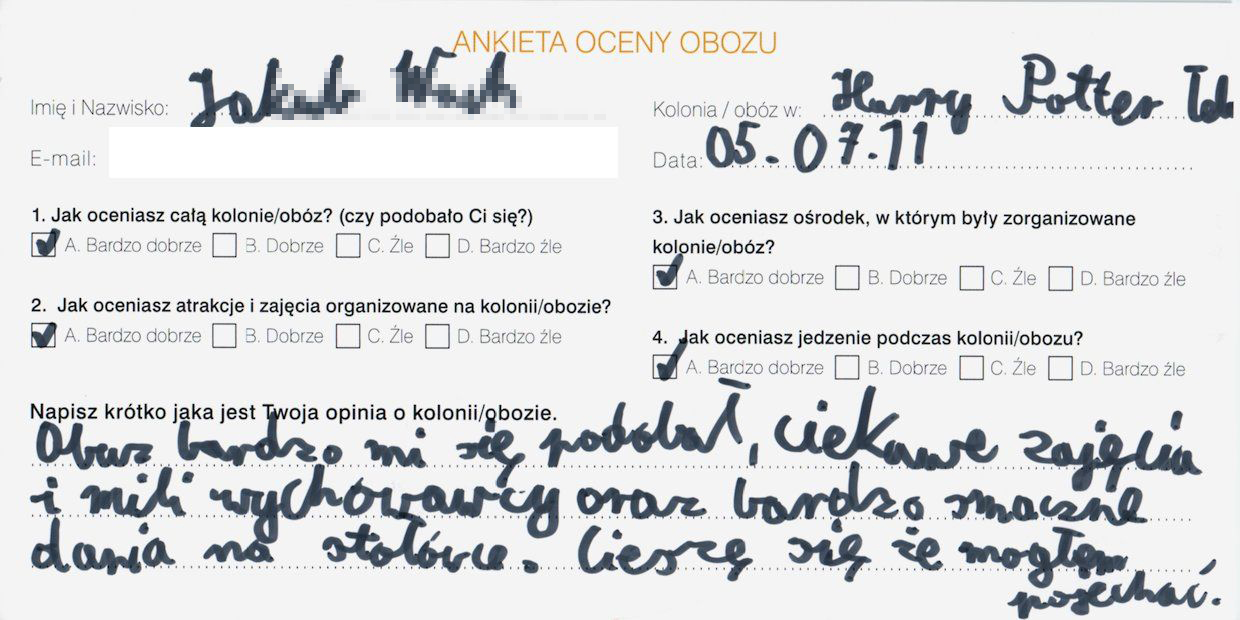 ANKIETA OCENY OBOZU
Imię i Nazwisko: Jakub
Kolonia / obóz w: Harry Potter
E-mail:
Data: 05.07.11
1. Jak oceniasz całą kolonie/obóz? (czy podobało Ci się?)
A. Bardzo dobrze B. Dobrze C. Źle D. Bardzo źle
2. Jak oceniasz atrakcje i zajęcia organizowane na kolonii/obozie?
A. Bardzo dobrze B. Dobrze C. Źle D. Bardzo źle
3. Jak oceniasz ośrodek, w którym były zorganizowane
kolonie/obóz?
A. Bardzo dobrze B. Dobrze C. Źle D. Bardzo źle
4. Jak oceniasz jedzenie podczas kolonii/obozu?
A. Bardzo dobrze B. Dobrze C. Źle D. Bardzo źle
Napisz krótko jaka jest Twoja opinia o kolonii/obozie.
Obuz bardzo mi się podobał, ciekawe zajęcia
i mili wychowawcy oraz bardzo smaczne
dania na stołówce. Cieszę się że mogłem
pojechać.